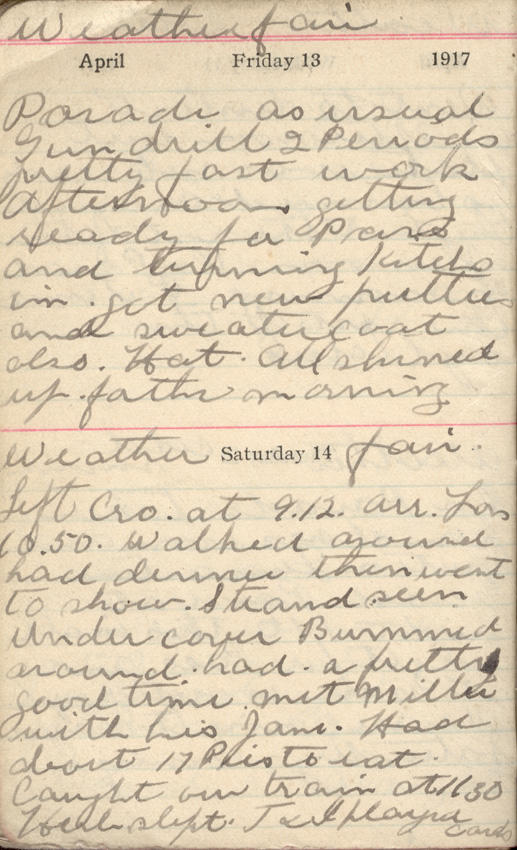 Weather fair
April Friday 13 1917
Parade as usual
Gun drill 2 Periods
pretty fast work
afternoon getting
ready for Pass
and turning kits
in. got new putties
and sweater coat
also. Hat. All shined
up. for the morning
Weather Saturday 14 fair.
Left Cro. at 9.12. arr. Lon
10.50. Walked around
had dinner then went
to show. Strand seen
Under cover Bummed
around. had. a pretty
good time met Miller
with his Jane. Had
about 17 Pies to eat.
Caught our train at 11.30
slept. played
cards